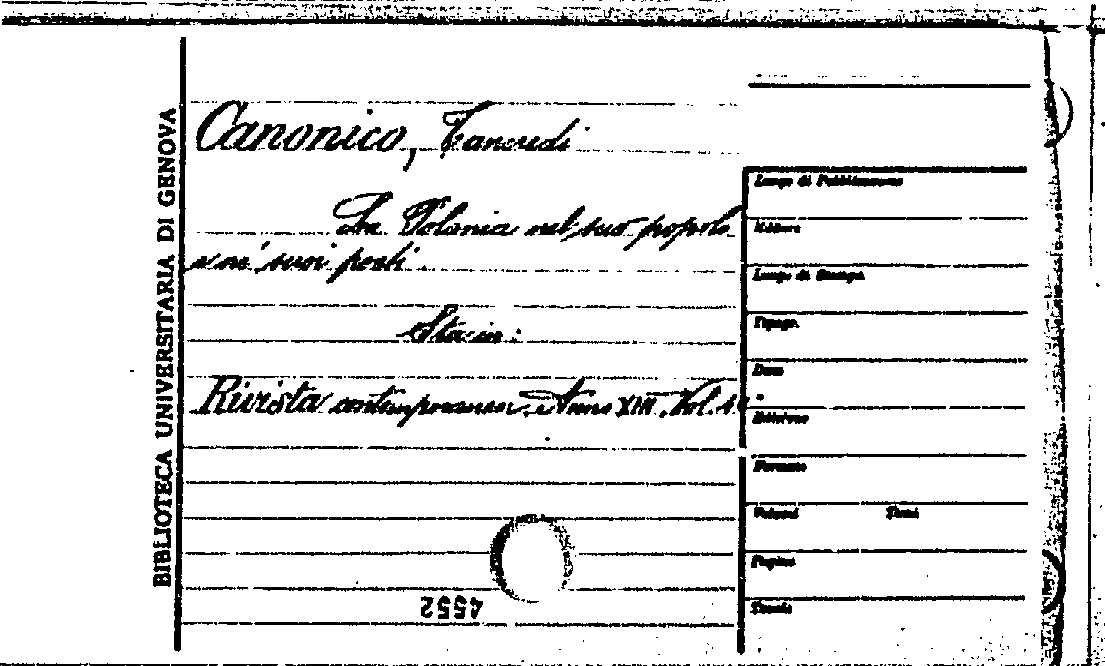 BIBLIOTECA UNIVERSITARIA DI GENOVA
Canonico, Tancredi
La Polonia nel suo popolo
e ne' suoi poeti
Sta in:
Rivista contemporanea. Anno XIII. Vol.
4552
Luogo di Pubblicazione
Editore
Luogo di Stampa
Tipogr.
Data
Edizione
Formato
Volumi Tomi
Pagine
Tavole